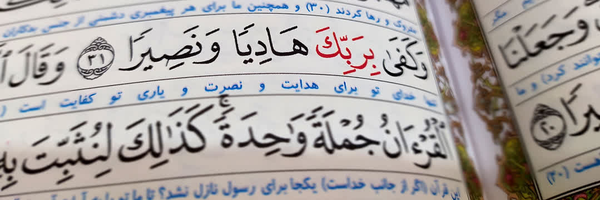 متروک و رها کردند (۳۰) و همچنین ما برای هر پیغمبری دشمنی از جنس بدکاران
وَكَفَىٰ بِرَبِّكَ هَادِيًا وَنَصِيرًا ﴿٣١﴾ وَقَالَ
تنها خدای تو برای هدایت و نصرت و یاری تو کفایت است (
ٱلْقُرْءَانُ جُمْلَةً وَٰحِدَةً ۚ كَذَٰلِكَ لِنُثَبِّتَ بِهِ
این قرآن (اگر از جانب خداست) یکجا برای رسول نازل نشد؟ تا ما
وَجَعَلْنَا
کردند) و ما
(۳۰)